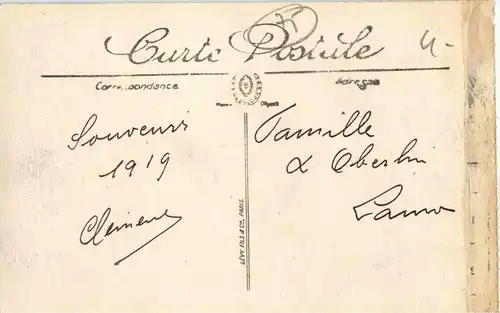 Carte Postale
Correspondance
Adresse
Souvenir
1919
Clement
Famille
& Oberlin
LÉVY FILS & Cie, PARIS